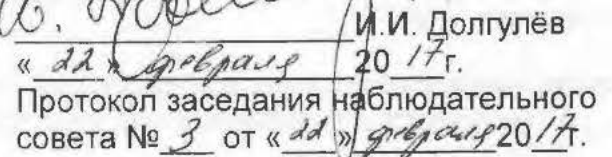 И.И. Долгулёв
« 22 » февраля 20 17 г.
Протокол заседания наблюдательного
совета № 3 от « 22 » февраля 20 17 г.